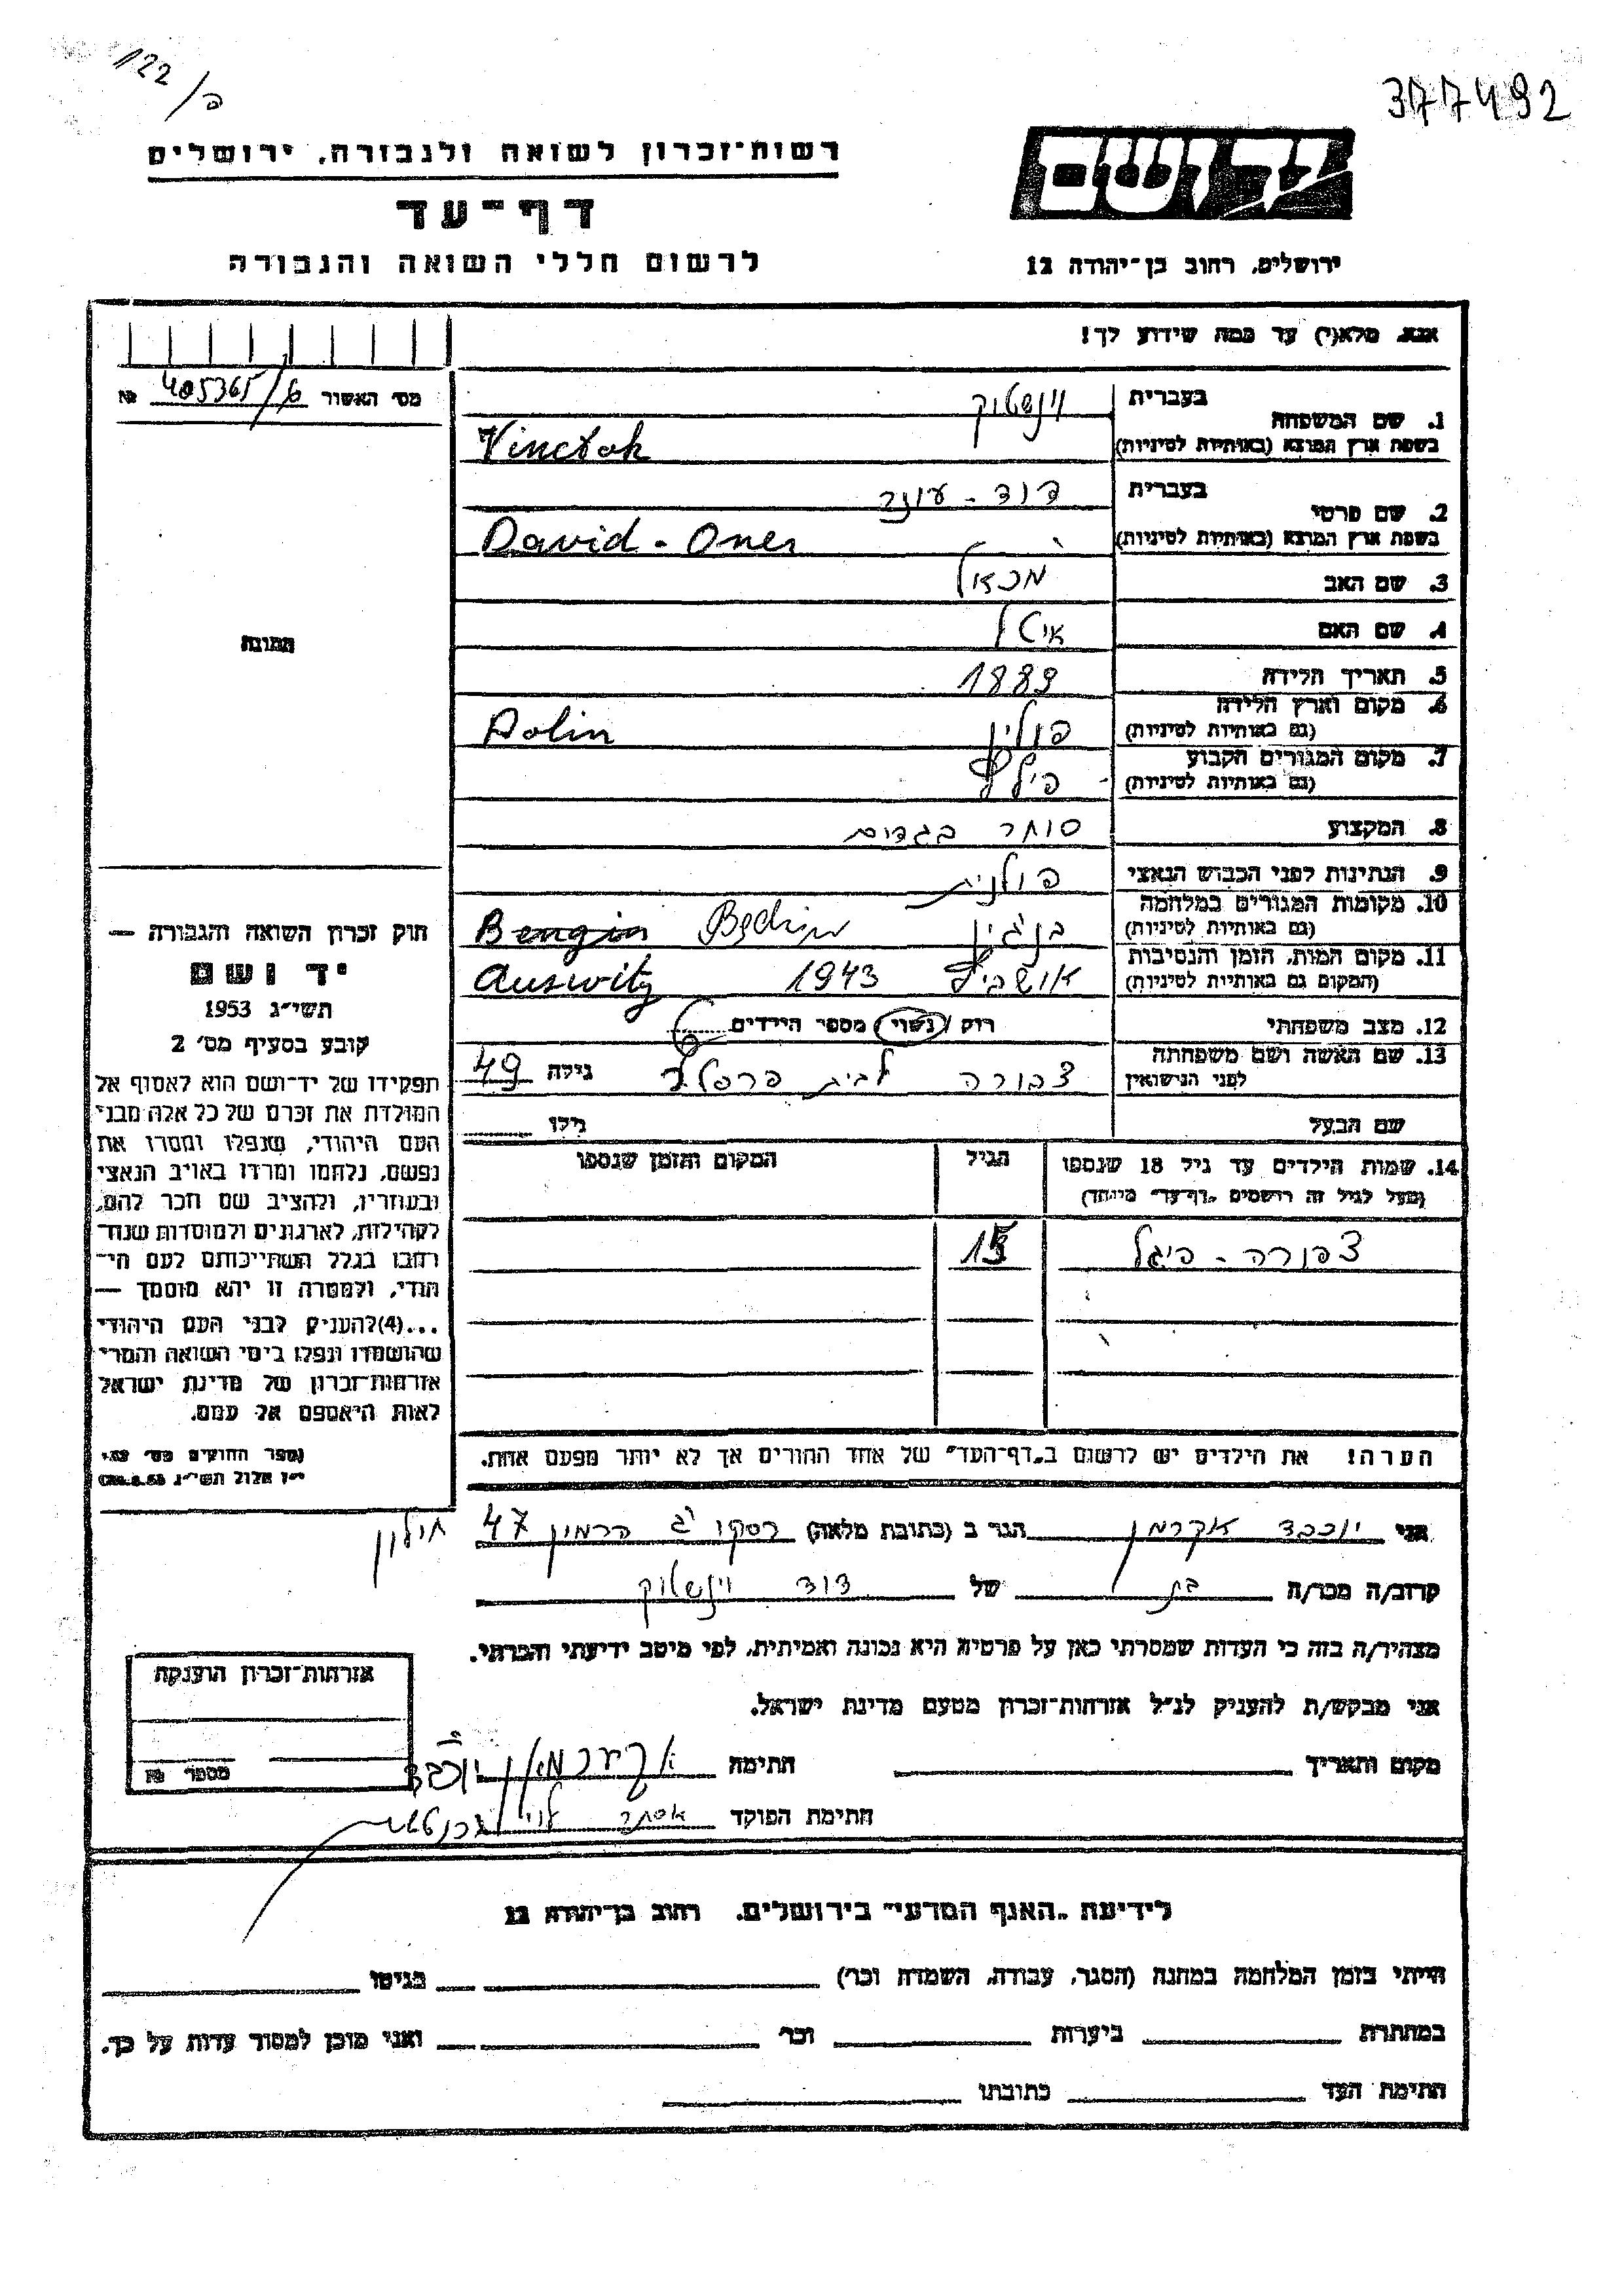 122/פ
377492
רשות־זכרון לשואה ולגבורה, ירושלים
דף־עד
לרשום חללי השואה והגבורה
יד ושם
ירושלים, רחוב בן־יהודה 12
אנא, מלא(י) עד כמה שידוע לך!
מס׳ האשור 405365/6 №
1. שם המשפחה
בעברית וינשטוק
בשפת ארץ המוצא (באותיות לטיניות) Vinctok
2. שם פרטי
בעברית דוד - עונר
בשפת ארץ המוצא (באותיות לטיניות) David - Oner
3. שם האב מכאל
4. שם האם
5. תאריך הלידה 1889
6. מקום וארץ הלידה פולין Polin
(גם באותיות לטיניות)
7. מקום המגורים הקבוע
(גם באותיות לטיניות)
8. המקצוע סוחר בגדים
9. הנתינות לפני הכבוש הנאצי פולנית
10. מקומות המגורים במלחמה בנגין Bengin Będzin
(גם באותיות לטיניות)
11. מקום המות, הזמן והנסיבות אושביץ 1943 Auswitz
(המקום גם באותיות לטיניות)
12. מצב משפחתי רוק / נשוי / מספר הילדים 6
13. שם האשה ושם משפחתה
לפני הנישואין לבית גילה 49
שם הבעל גילו
14. שמות הילדים עד גיל 18 שנספו הגיל המקום והזמן שנספו
(מעל לגיל זה רושמים „דף־עד״ מיוחד)
צפורה - פיגל 15
הערה! את הילדים יש לרשום ב„דף־העד״ של אחד ההורים אך לא יותר מפעם אחת.
התמונה
חוק זכרון השואה והגבורה —
יד ושם
תשי״ג 1953
קובע בסעיף מס׳ 2
תפקידו של יד־ושם הוא לאסוף אל
המולדת את זכרם של כל אלה מבני
העם היהודי, שנפלו ומסרו את
נפשם, נלחמו ומרדו באויב הנאצי
ובעוזריו, ולהציב שם וזכר להם,
לקהילות, לארגונים ולמוסדות שנח־
רבו בגלל השתייכותם לעם הי־
הודי, ולמטרה זו יהא מוסמך —
...(4) להעניק לבני העם היהודי
שהושמדו ונפלו בימי השואה והמרי
אזרחות־זכרון של מדינת ישראל
לאות היאספם אל עמם.
(ספר החוקים מס׳ 132
י״ז אלול תשי״ג 28.8.53)
אני יוכבד אקרמן הגר ב (כתובת מלאה) רסקו ג׳ הרמין 47 חולון
קרוב/ה מכר/ה בת של דוד וינשטוק
מצהיר/ה בזה כי העדות שמסרתי כאן על פרטיה היא נכונה ואמיתית, לפי מיטב ידיעתי והכרתי.
אני מבקש/ת להעניק לנ״ל אזרחות־זכרון מטעם מדינת ישראל.
מקום ותאריך חתימה אקרמאן יוכבד
חתימת הפוקד אסתר לוי
אזרחות־זכרון הוענקה
מספר №
לידיעת „האגף המדעי״ בירושלים, רחוב בן־יהודה 12
הייתי בזמן המלחמה במחנה (הסגר, עבודה, השמדה וכר׳) בגיטו
במחתרת ביערות וכר׳ ואני מוכן למסור עדות על כך.
חתימת העד כתובתו